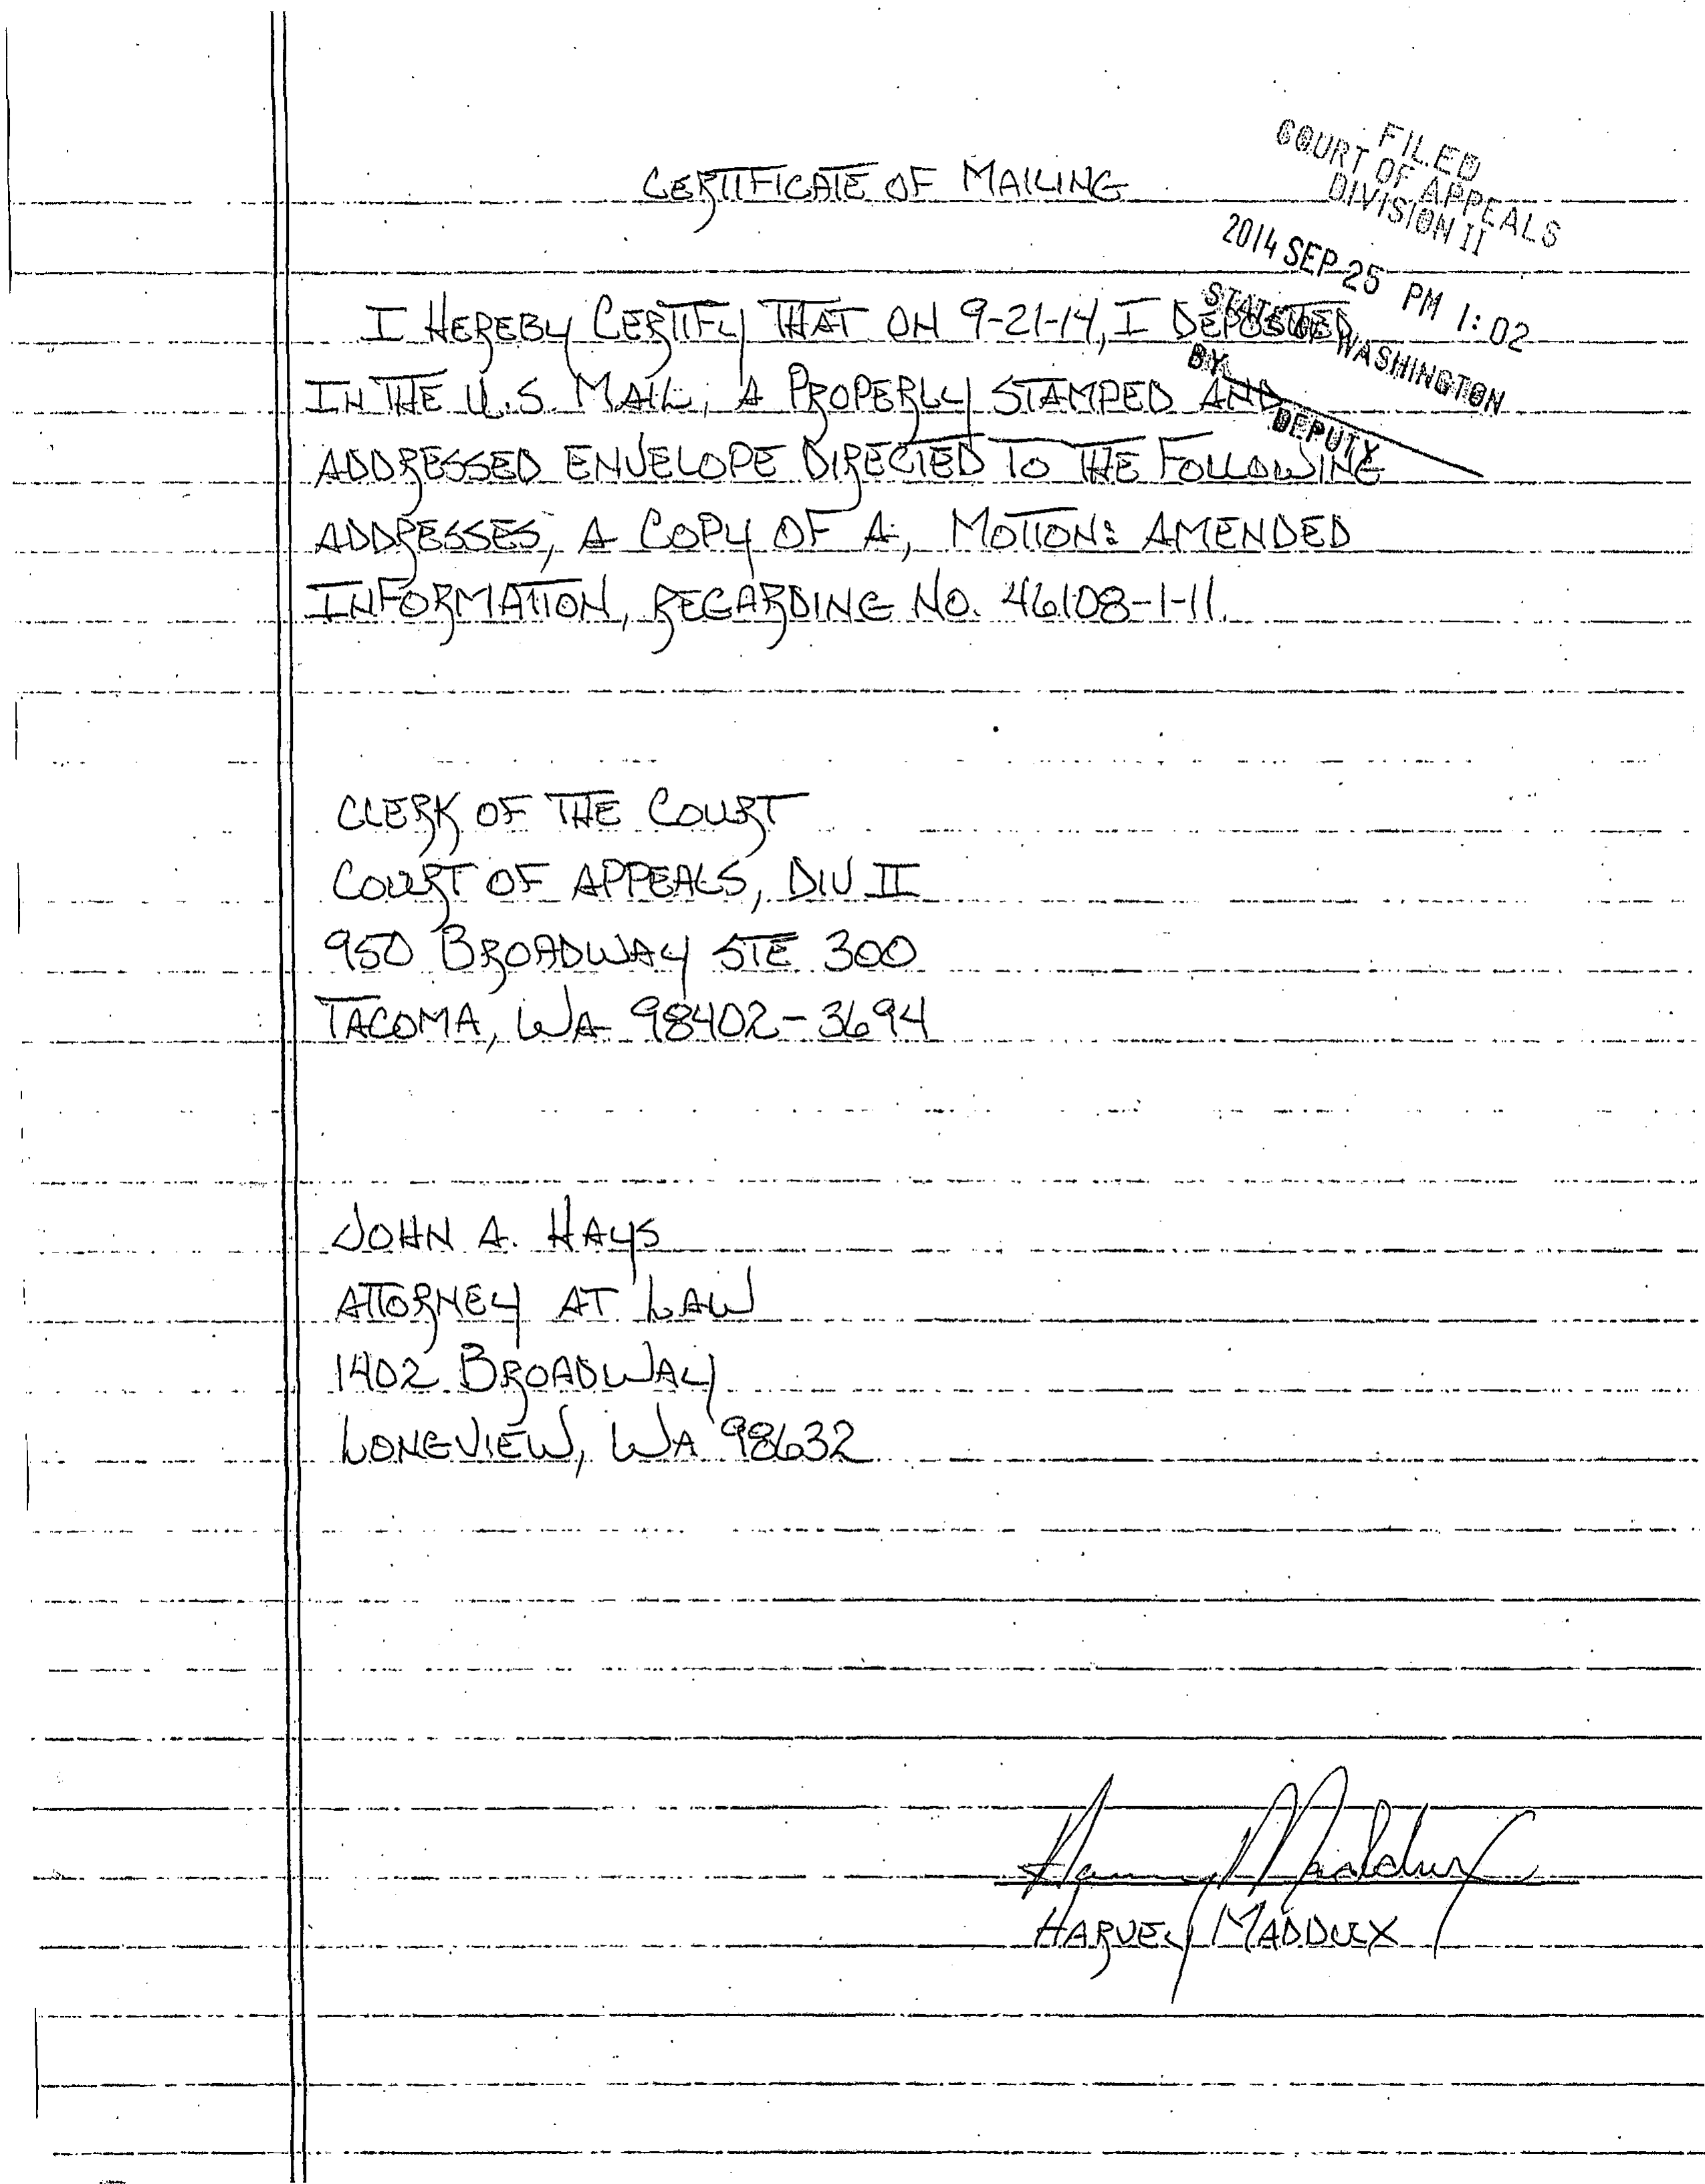 FILED
COURT OF APPEALS
DIVISION II
2014 SEP 25 PM 1:02
STATE OF WASHINGTON
BY
DEPUTY
CERTIFICATE OF MAILING
I HEREBY CERTIFY THAT ON 9-21-14, I DEPOSITED
IN THE U.S. MAIL, A PROPERLY STAMPED AND
ADDRESSED ENVELOPE DIRECTED TO THE FOLLOWING
ADDRESSES, A COPY OF A, MOTION: AMENDED
INFORMATION, REGARDING NO. 46108-1-11.
CLERK OF THE COURT
COURT OF APPEALS, DIV II
950 BROADWAY STE 300
TACOMA, WA 98402-3694
JOHN A. HAYS
ATTORNEY AT LAW
1402 BROADWAY
LONGVIEW, WA 98632
Harvey Maddux
HARVEY MADDUX